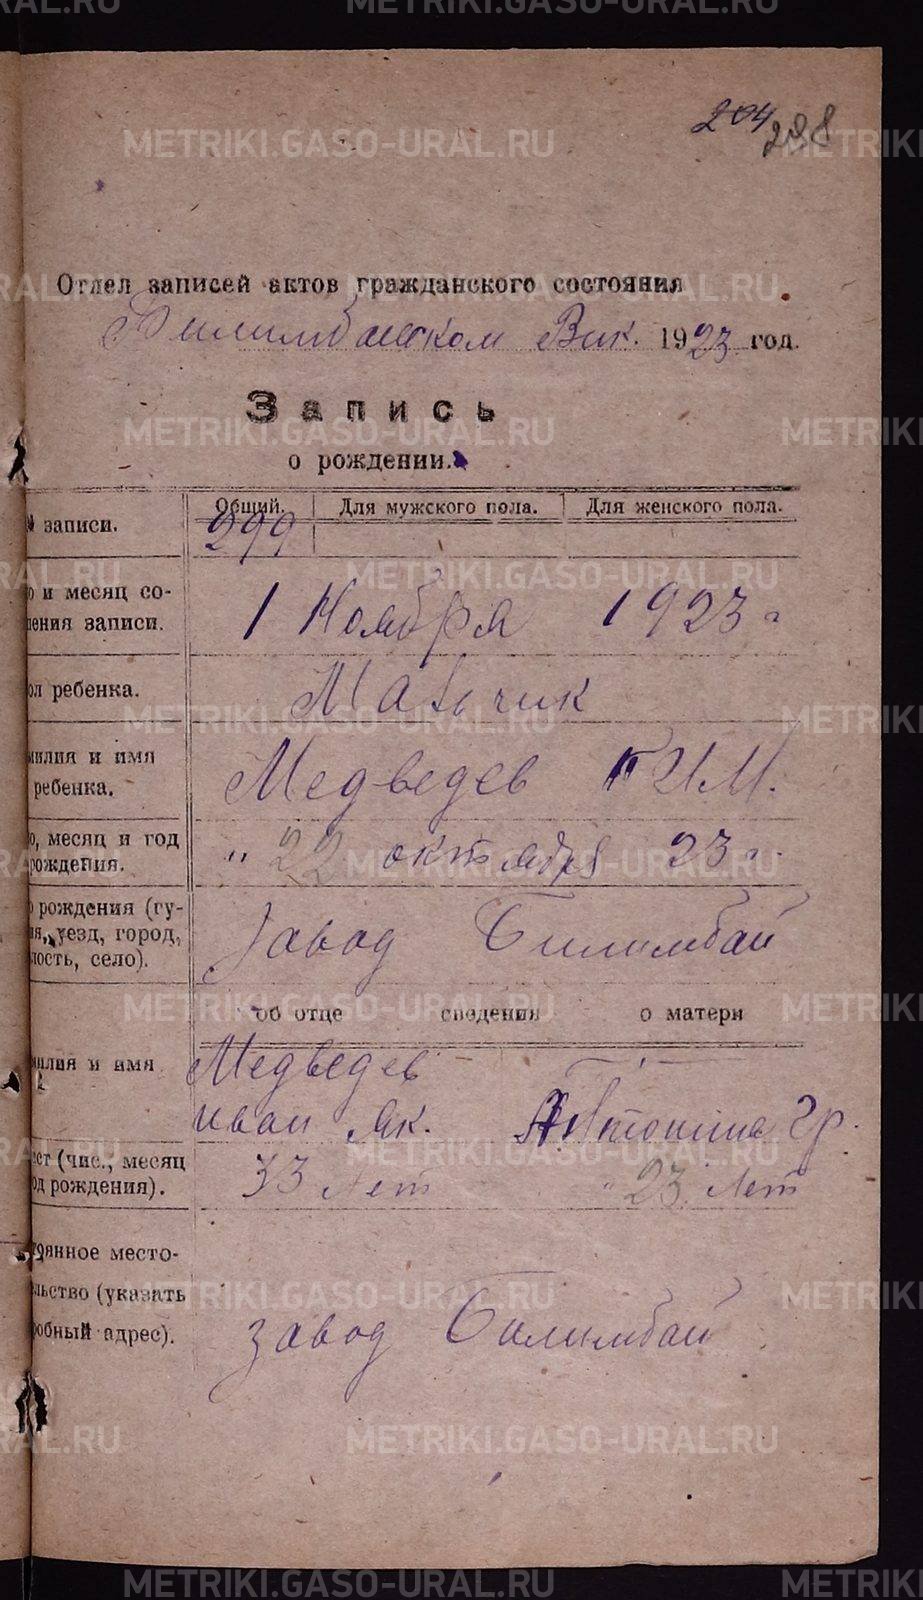 204
298
Отдел записей актов гражданского состояния
Билимбаевском Вик. 1923 год.
Запись
о рождении.
записи.
Общий.
Для мужского пола.
Для женского пола.
299
о и месяц со-
ления записи.
1 Ноября 1923 г
ол ребенка.
Мальчик
милия и имя
ребенка.
Медведев КИМ.
о, месяц и год
рождения.
" 22 октября 23 г.
о рождения (гу-
ия, уезд, город,
лость, село).
Завод Билимбай
об отце сведения о матери
милия и имя
Медведев — " —
иван Як. Антонина Гр.
ст (чис., месяц
од рождения).
33 Лет " 23 Лет
тоянное место-
льство (указать
робный адрес).
завод Билимбай
METRIKI.GASO-URAL.RU